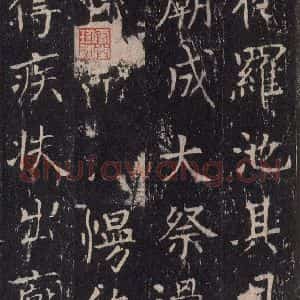 於羅池其月
廟成大祭過
慢
得疾扶出廟
Shufawang.CN